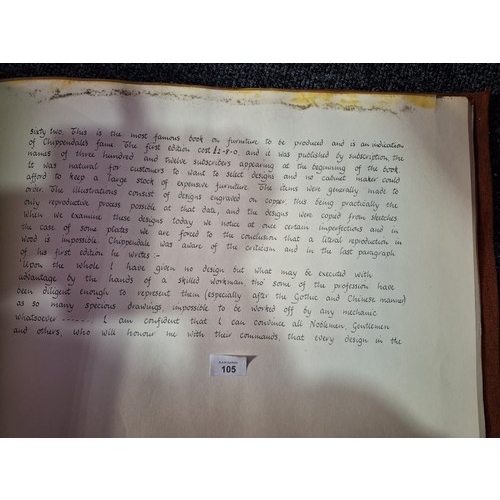 sixty two. This is the most famous book on furniture to be produced and is an indication
of Chippendale's fame. The first edition cost £2-8-0 and it was published by subscription, the
names of three hundred and twelve subscribers appearing at the beginning of the book.
It was natural for customers to want to select designs and no cabinet maker could
afford to keep a large stock of expensive furniture. The items were generally made to
order. The illustrations consist of designs engraved on copper, this being practically the
only reproductive process possible at that date, and the designs were copied from sketches.
When we examine these designs today we notice at once certain imperfections and in
the case of some plates we are forced to the conclusion that a literal reproduction in
wood is impossible. Chippendale was aware of the criticism and in the last paragraph
of his first edition he wrote :-
"Upon the whole I have given no design but what may be executed with
advantage by the hands of a skilled workman tho' some of the profession have
been diligent enough to represent them (especially after the Gothic and Chinese manner)
as so many specious drawings, impossible to be worked off by any mechanic
whatsoever ----- I am confident that I can convince all Noblemen, Gentlemen
and others, who will honour me with their commands, that every design in the
105